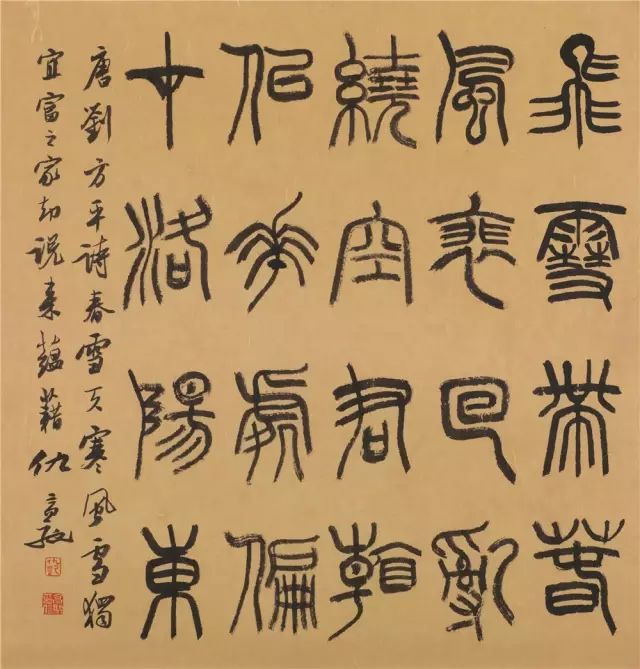 飛雪帶春
風裴回亂
繞空君看
佀花處偏
在洛陽東
唐劉方平詩春雪天寒風雪獨
宜富之家却説来蘊藉仇高